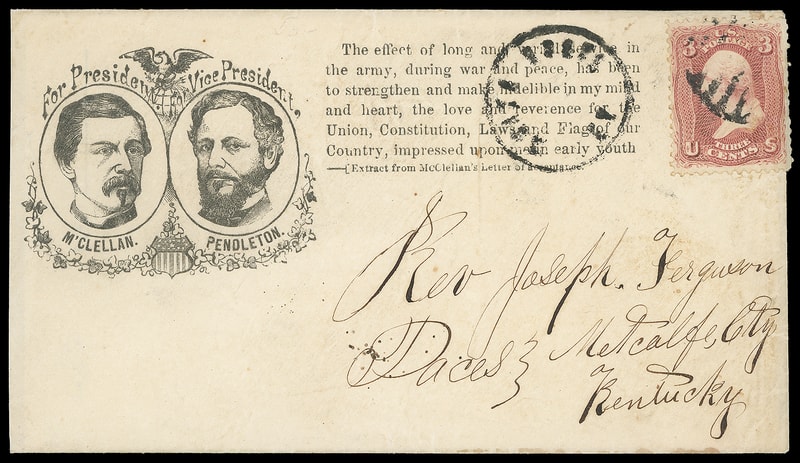 For President, Vice President,
M'CLELLAN. PENDLETON.
The effect of long and varied service in
the army, during war and peace, has been
to strengthen and make indelible in my mind
and heart, the love and reverence for the
Union, Constitution, Laws and Flag of our
Country, impressed upon me in early youth
—[Extract from McClellan's Letter of acceptance.
3 U.S. 3
POSTAGE
THREE
U CENTS S
Rev Joseph. Ferguson
Daces} Metcalfe, Cty
Kentucky